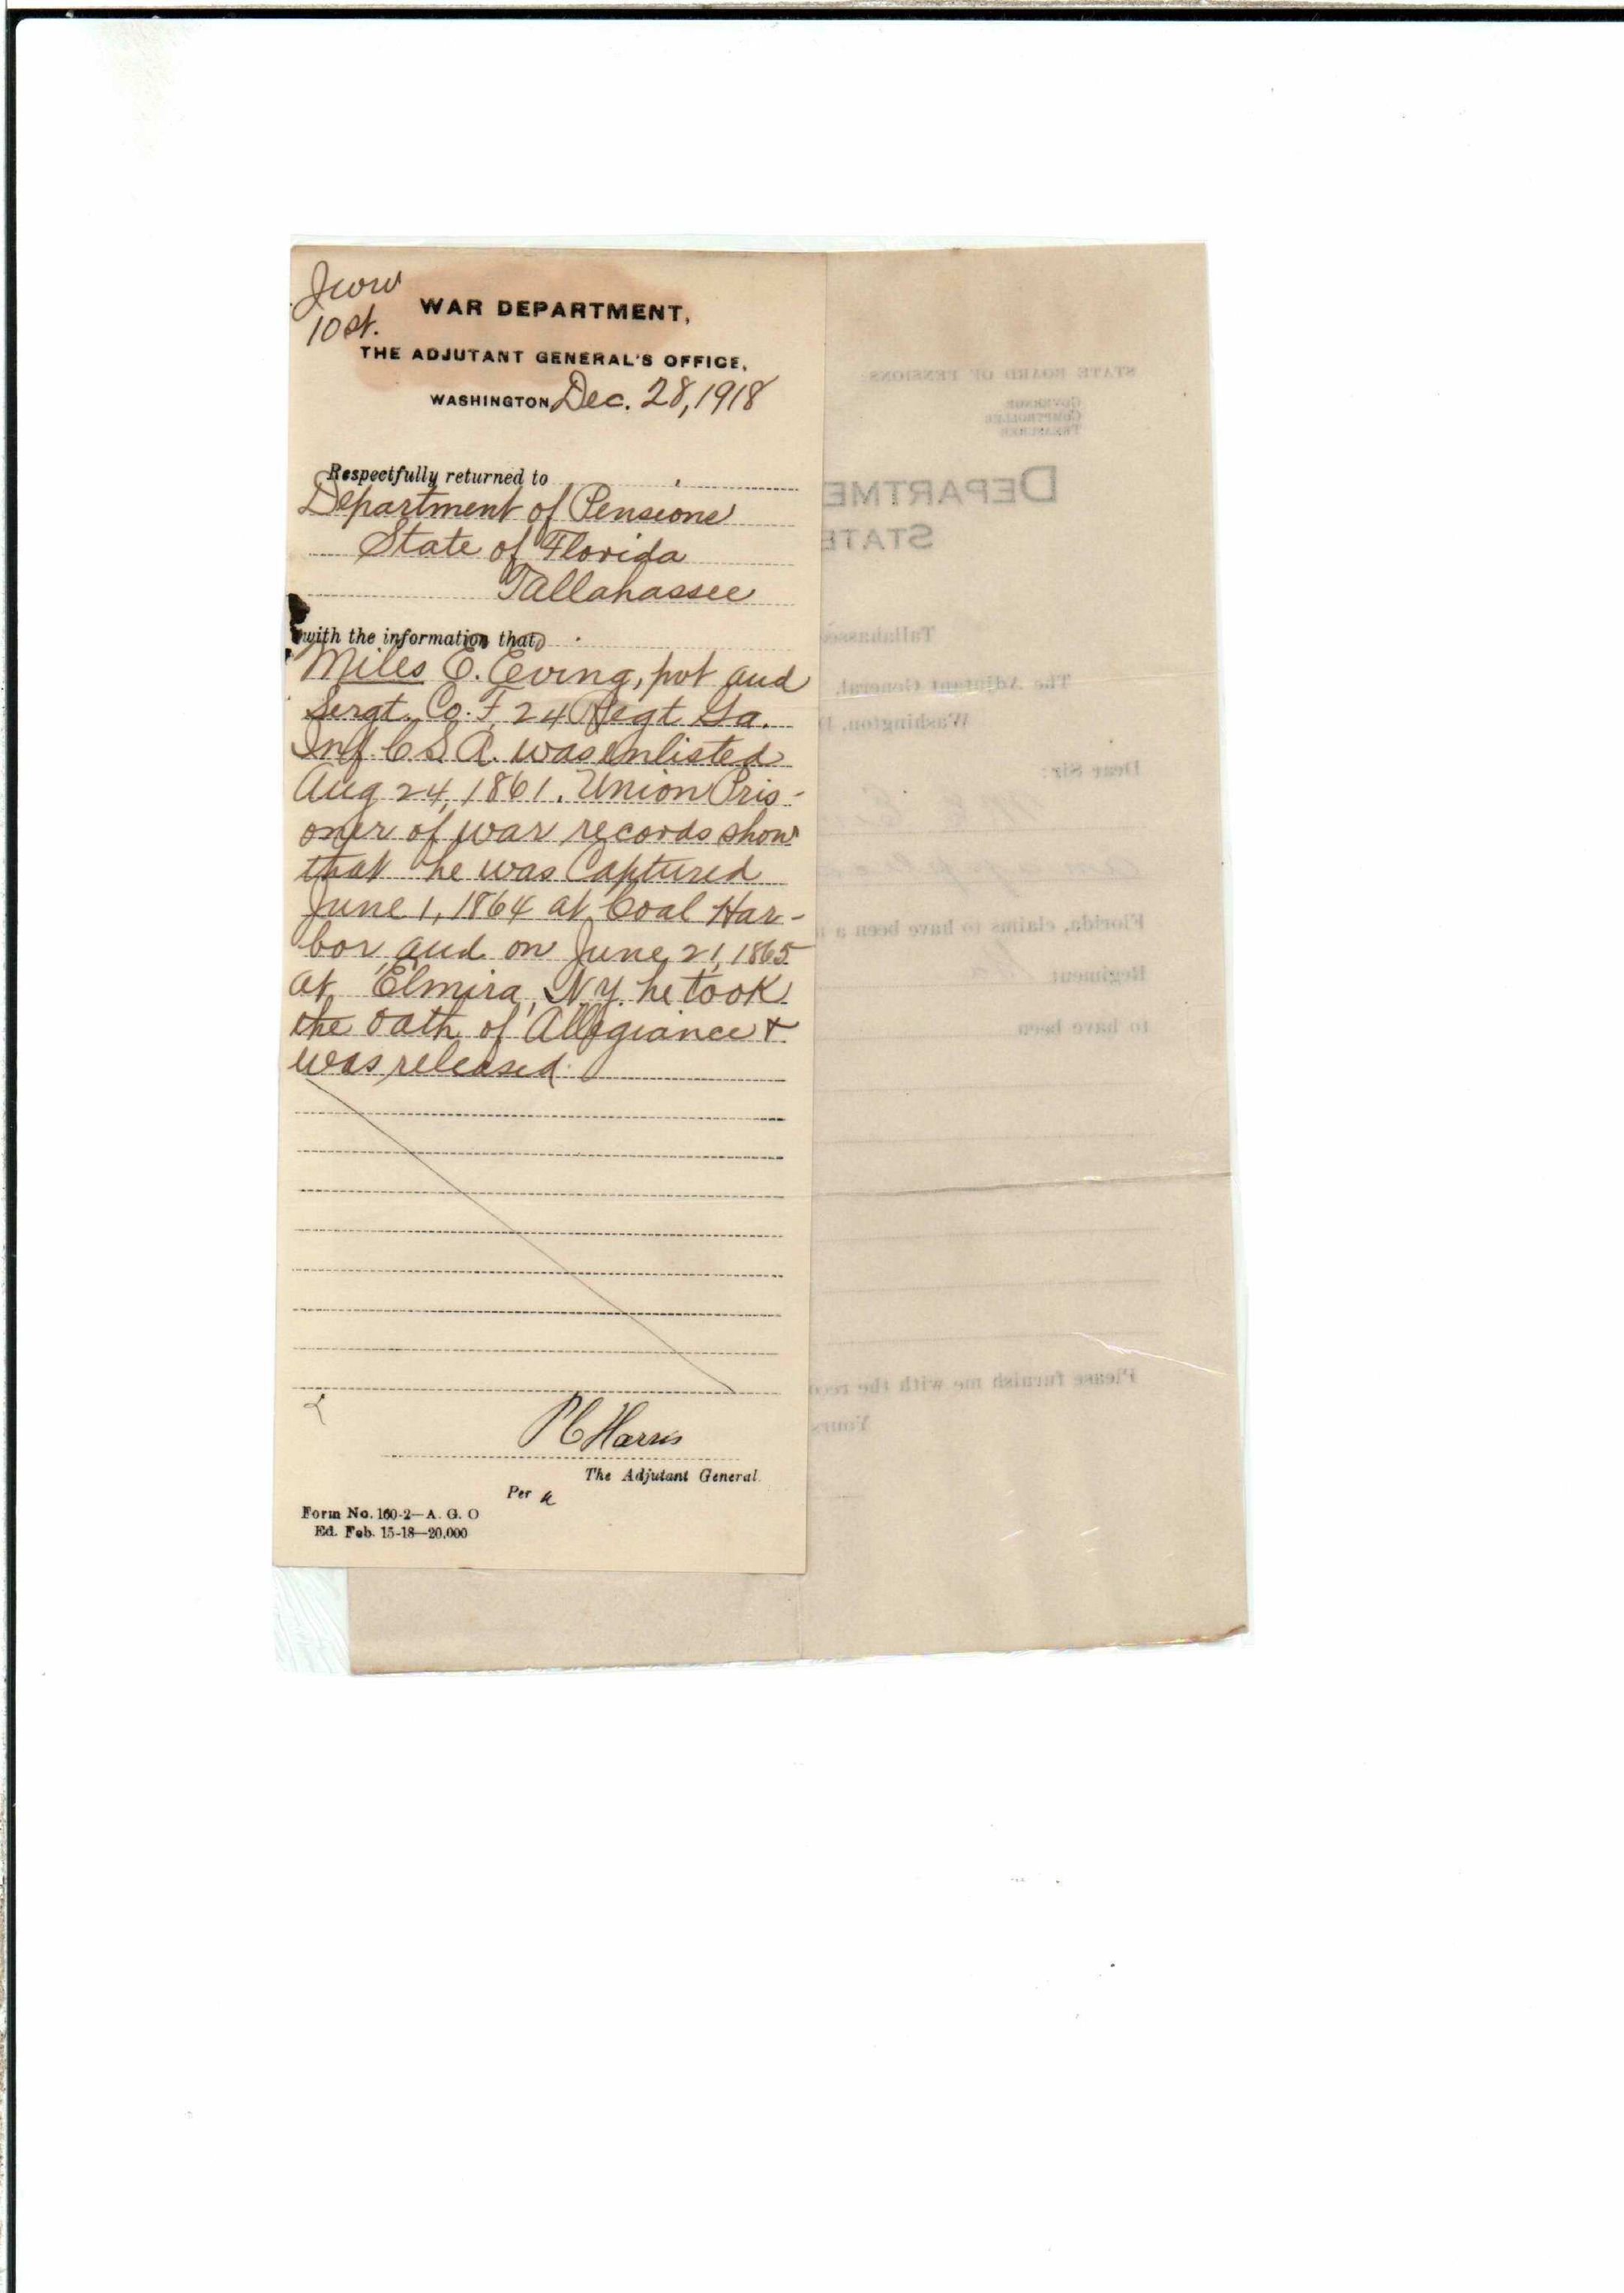 Jww
10 st.
WAR DEPARTMENT,
THE ADJUTANT GENERAL'S OFFICE,
WASHINGTON, Dec. 28, 1918
Respectfully returned to
Department of Pensions
State of Florida
Tallahassee
with the information that
Miles E. Ewing, pvt and
Sergt. Co. F, 24 Regt Ga.
Inf. C S A. was enlisted
Aug 24, 1861. Union Pris-
oner of war records show
that he was Captured
June 1, 1864 at Coal Har-
bor, and on June 21, 1865
at Elmira, N.Y. he took
the oath of Allegiance &
was released.
P C Harris
The Adjutant General.
Per
Form No. 160-2—A. G. O
Ed. Feb. 15-18—20,000
STATE BOARD OF PENSIONS
GOVERNOR
COMPTROLLER
TREASURER
DEPARTME
STATE
Tallahassee
The Adjutant General,
Washington, D
Dear Sir:
M. E. E
Florida, claims to have been a
Regiment Ga
to have been
Please furnish me with the reco
Yours